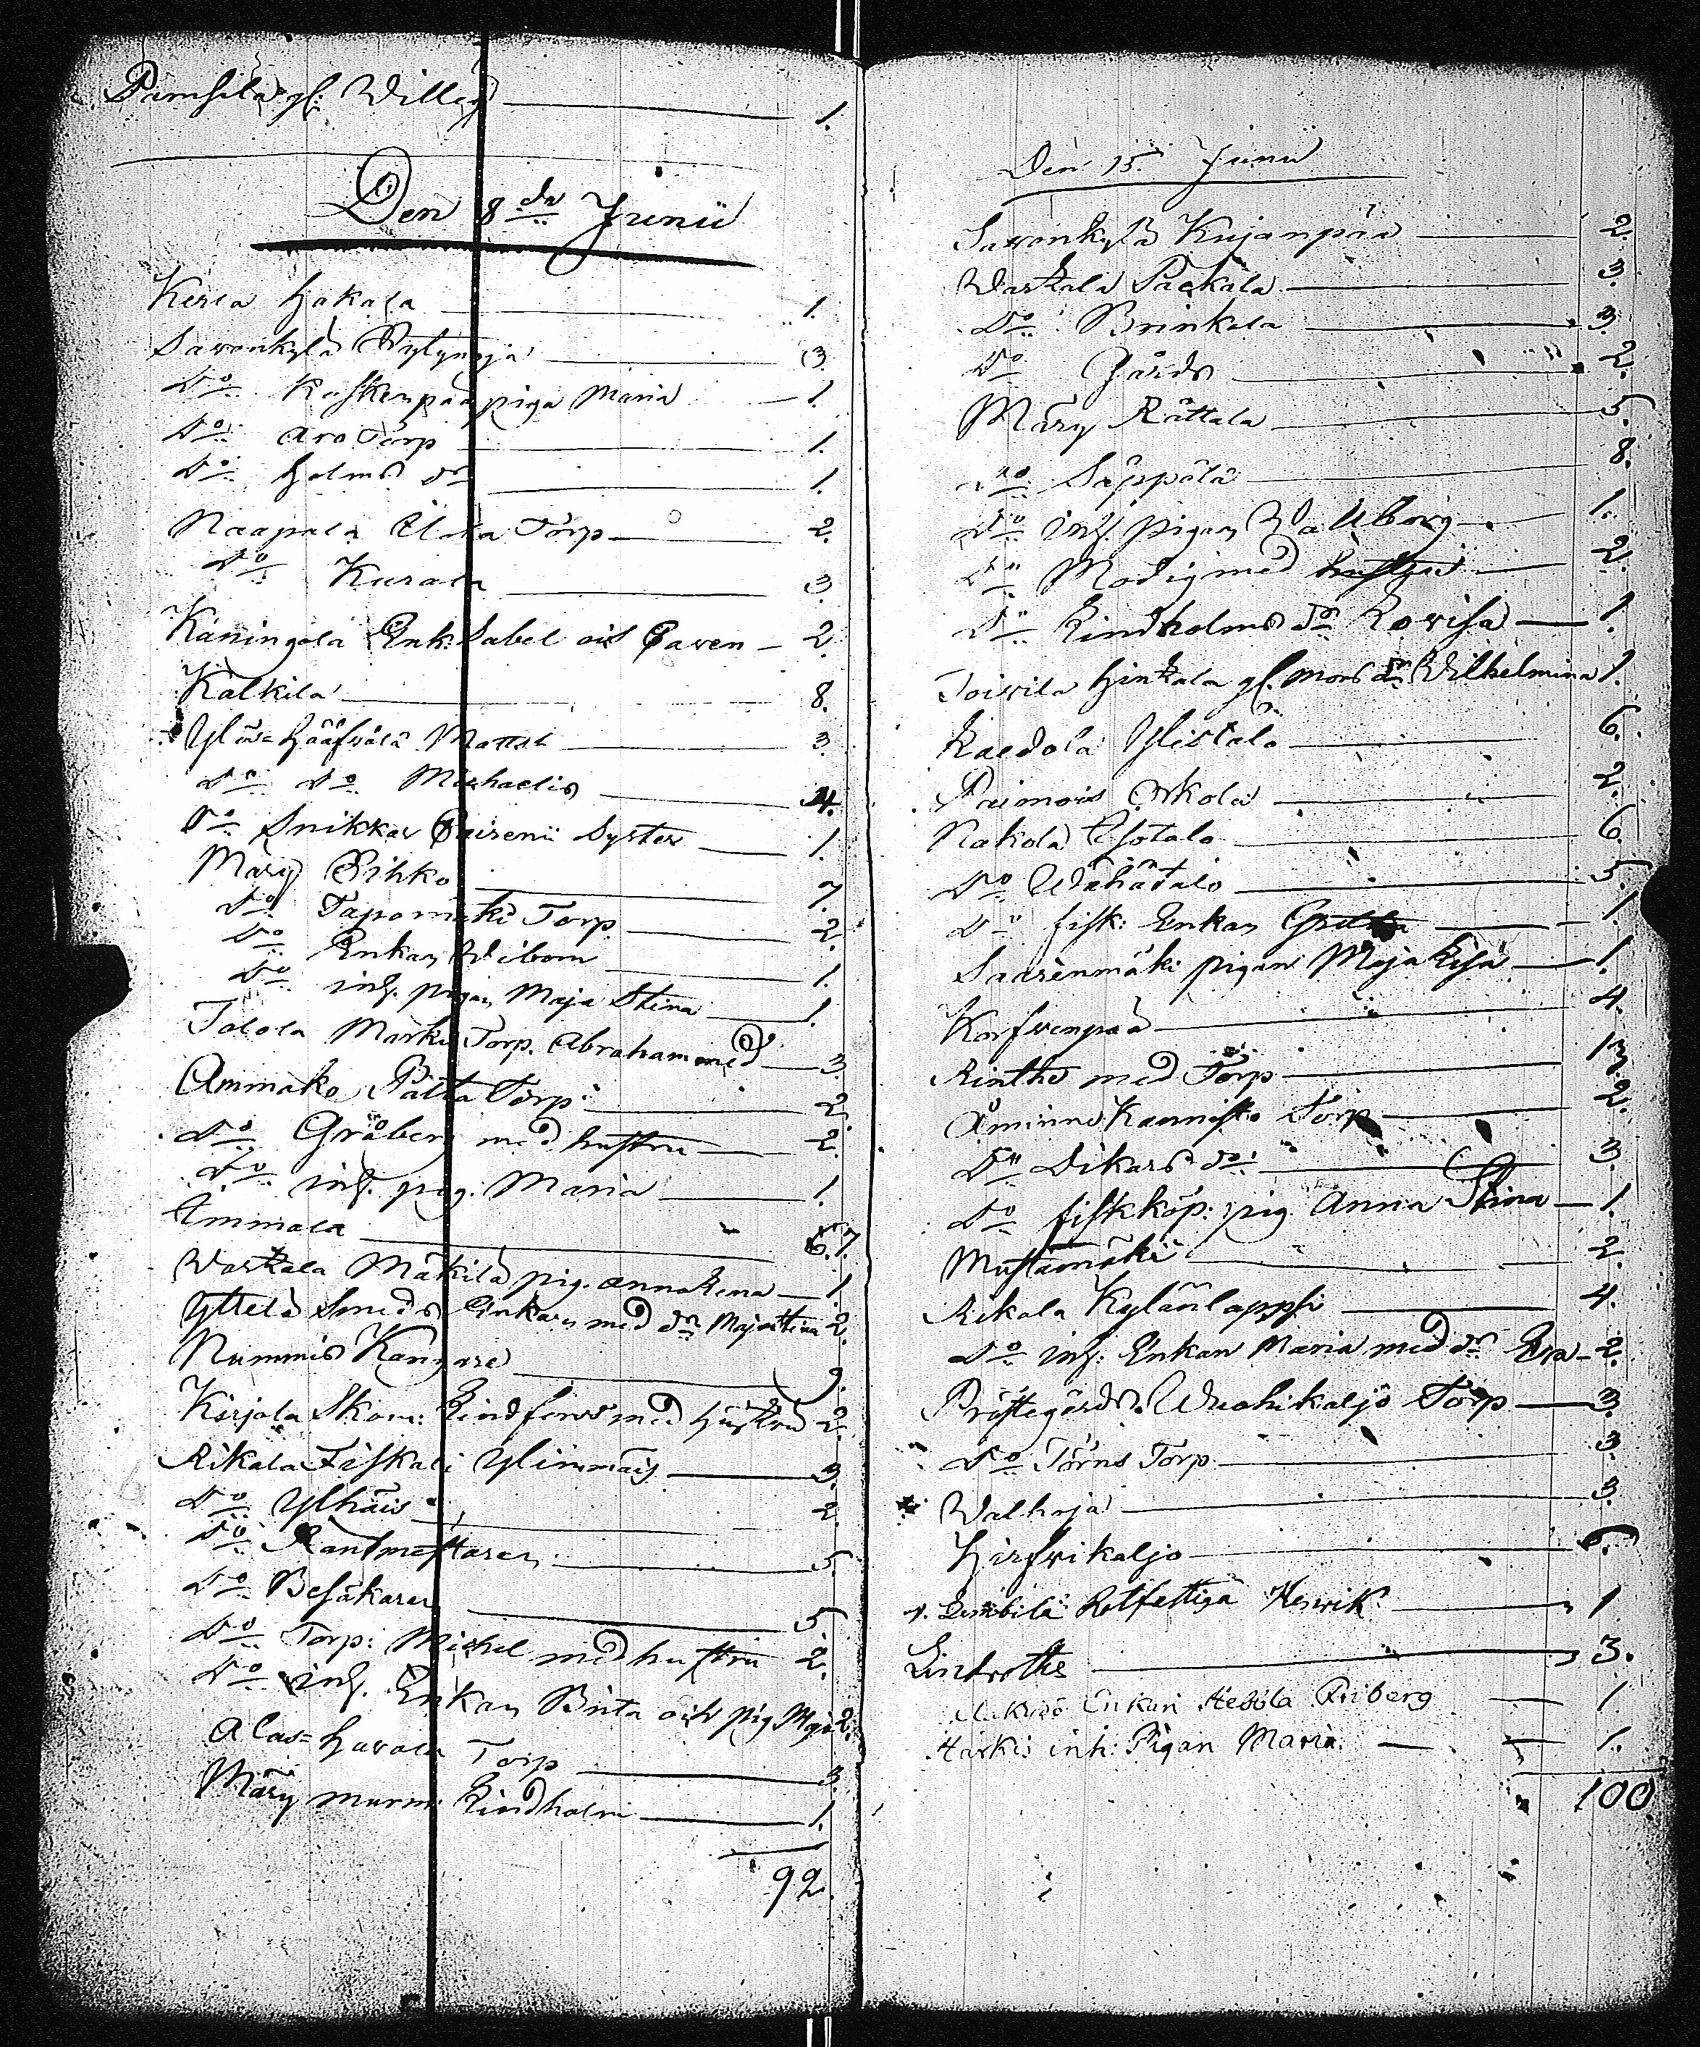 Pämsilä gl: Willig 1.
Den 8de Junii
Kerla Hakala 1.
Savonkylä Pytynoja 3
Do Koskenpää piga Maria 1.
Do Aro Torp 1.
Do Holms do 1.
Naapala Torp 2.
Do Kurala 3.
Käningälä Enk: Sabel och 2.
Kalkila 8.
Ylös= Hääfvälä Matts 3.
Do Do Michaelis 4.
Do Snikkar Syster 1.
Märy Pihko 7.
Do Tapomäki Torp 2.
Do Enkan Wibom 1.
Do inh. pigan Maja Stina 1.
Isolola Torp. Abraham med 3.
Ammako Torp 2.
Do Gråberg med hustru 2.
Do inh. pig. Maria 1.
Immala 7.
Waskala Mäkilä pig. Anna Lena 1.
Yttelä Smeds Enkan med dr Maja Stina 2.
Nummis Kangare 9.
Kirjola Skom: Lindfors med hustru 2.
Rikala Fiskali Ylimmäis 3.
Do Ylhäis 2.
Do Rantmästaren 5.
Do Besökaren 5.
Do Torp: Michel med hustru 2.
Do inh. Enkan Brita och pig Maja 2.
Alas= Havala Torp 3.
Märy murm: Lindholm 1.
92.
Den 15. Junii
Savonkylä Kujanpää 2.
Waskala Päckälä 3.
Do Brinkala 3.
Do Gårds 2.
Märy Rättala 5.
Do Säppälä 8.
Do inh. pigan Wallborg 1.
Do Modig med hustru 2.
Do Lindholms do Lovisa 1.
Toivila Hinkala gl. mors dr Wilhelmina 1.
Kaedola Ylistalo 6.
Raimois Orkola 2.
Nakola Isotalo 6.
Do Wähätalo 5.
Do fisk: Enkan Gretha 1.
Saarenmäki pigan Maja Lisa 1.
Korfvenpää 4.
Rinthe med Torp 13.
Åminne Kannisto Torp 2.
Do Dikars do 3.
Do fiskköp: pig. Anna Stina 1.
Mustamäki 2.
Rikala Kylänlappi 4.
Do inh: Enkan Maria med dr Eva 2.
Prästegårds Wuohikaljo Torp 3.
Do Törns Torp 3.
Walhoja 3.
Hirfvikaljo 6.
Rotfattiga Henrik 1
Lintroths 3.
Enkan Hedda Friberg 1
Härkis inh: Pigan Maria 1.
100